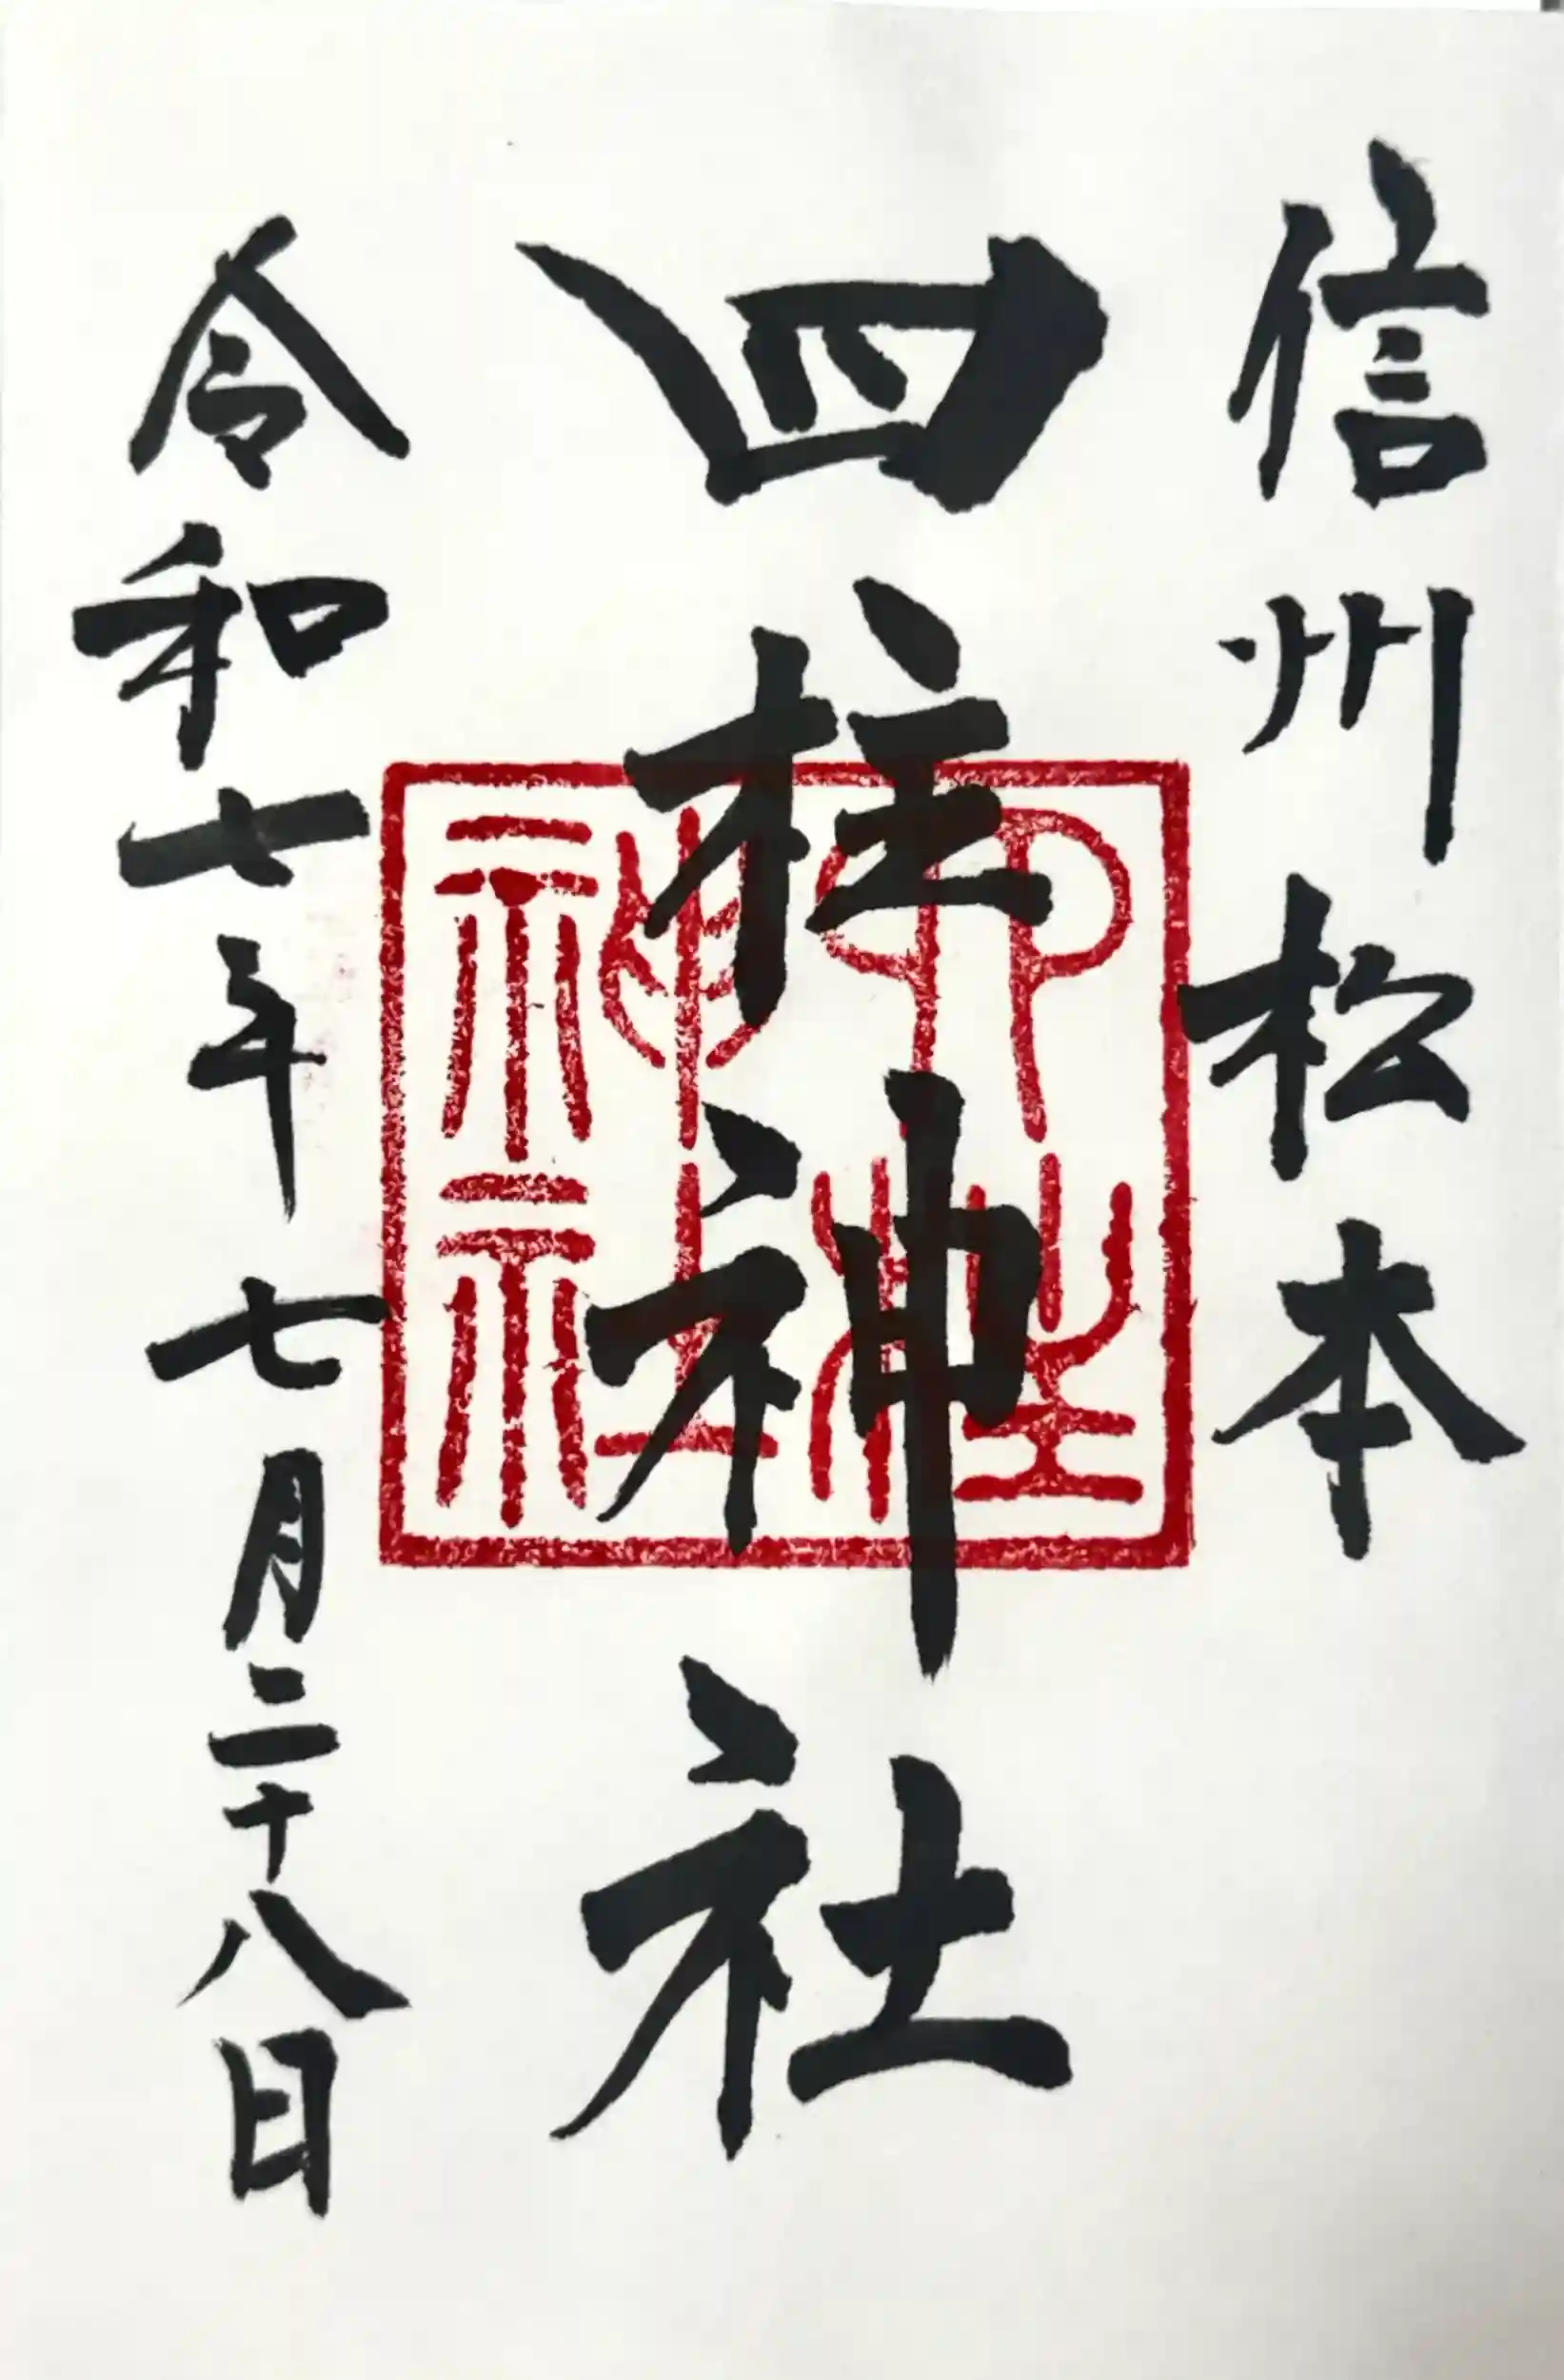 信州松本
四柱神社
四柱神社
令和七年七月二十八日